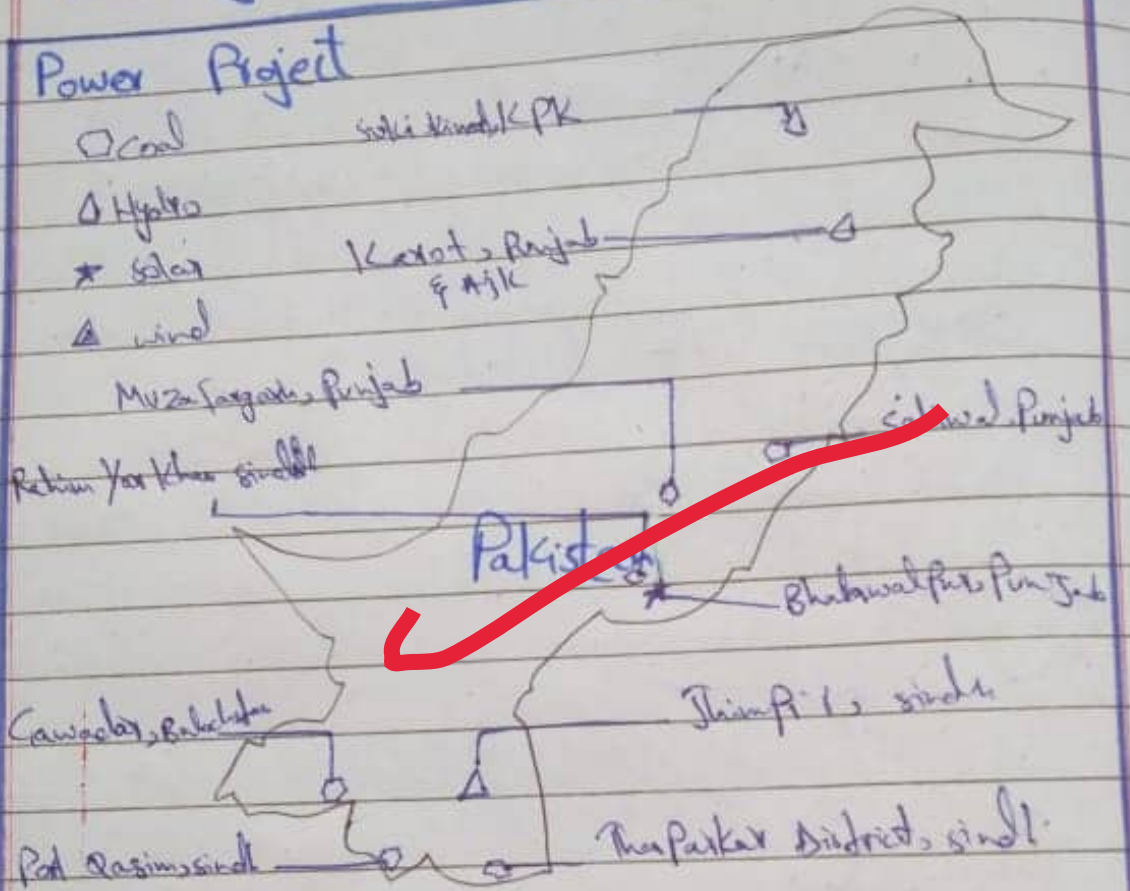 Power Project
Coal
Suki Kinari, KPK
Hydro
Karot, Punjab
& AJK
solar
wind
Muzafargarh, Punjab
Punjab
Rahim Yar Khan sindh
Pakistan
Bhahawalpur, Punjab
Gawadar, Balochistan
Jhimpir, sindh
Port Qasim, sindh
TharParkar District, sindh